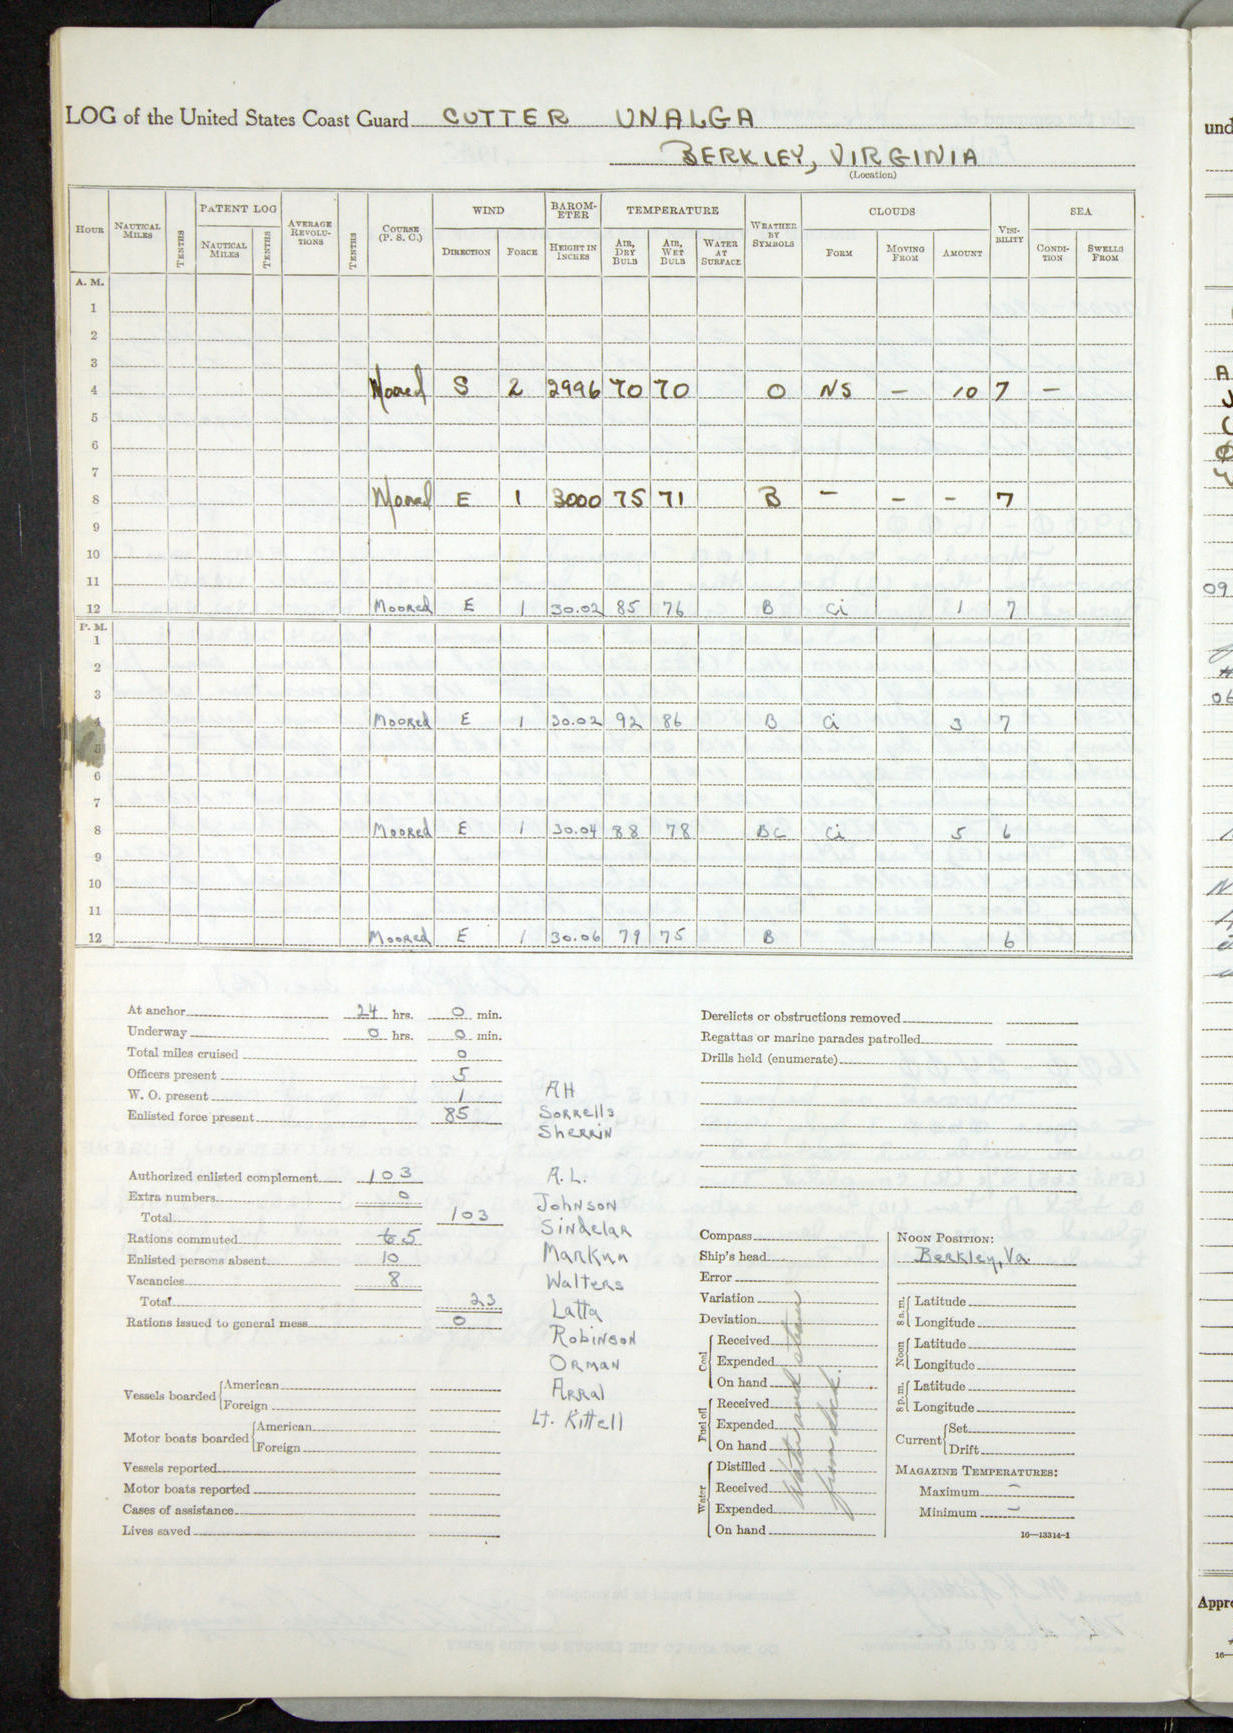 LOG of the United States Coast Guard CUTTER UNALGA
BERKLEY, VIRGINIA
(Location)
HOUR NAUTICAL MILES TENTHS PATENT LOG NAUTICAL MILES TENTHS AVERAGE REVOLUTIONS TENTHS COURSE (P. S. C.) WIND DIRECTION FORCE BAROMETER HEIGHT IN INCHES TEMPERATURE AIR, DRY BULB AIR, WET BULB WATER AT SURFACE WEATHER BY SYMBOLS CLOUDS FORM MOVING FROM AMOUNT VISIBILITY SEA CONDITION SWELLS FROM
A. M.
1
2
3
4 Moored S 2 2996 70 70 O NS — — 10 7 —
5
6
7
8 Moored E 1 3000 75 71 B — — — 7
9
10
11
12 Moored E 1 30.02 85 76 B Ci 1 7
P. M.
1
2
3
4 Moored E 1 30.02 92 86 B Ci 3 7
5
6
7
8 Moored E 1 30.04 88 78 BC Ci 5 6
9
10
11
12 Moored E 1 30.06 79 75 B 6
At anchor 24 hrs. 0 min.
Underway 0 hrs. 0 min.
Total miles cruised 0
Officers present 5
W. O. present 1
Enlisted force present 85
Authorized enlisted complement 103
Extra numbers 0
Total 103
Rations commuted 5
Enlisted persons absent 10
Vacancies 8
Total 23
Rations issued to general mess 0
Vessels boarded American
Foreign
Motor boats boarded American
Foreign
Vessels reported
Motor boats reported
Cases of assistance
Lives saved
AH
Sorrells
Sherrin
A.L.
Johnson
Sindelar
Markun
Walters
Latta
Robinson
Orman
Arral
Lt. Kittell
Derelicts or obstructions removed
Regattas or marine parades patrolled
Drills held (enumerate)
Compass
Ship's head
Error
Variation
Deviation
Coal Received
Expended
On hand
Fuel oil Received
Expended
On hand
Water Distilled
Received
Expended
On hand
Water and steam
from dock.
NOON POSITION:
Berkley, Va.
8 a. m. Latitude
Longitude
Noon Latitude
Longitude
8 p. m. Latitude
Longitude
Current Set
Drift
MAGAZINE TEMPERATURES:
Maximum —
Minimum —
16—13314-1
und
09
06
Appro
16—